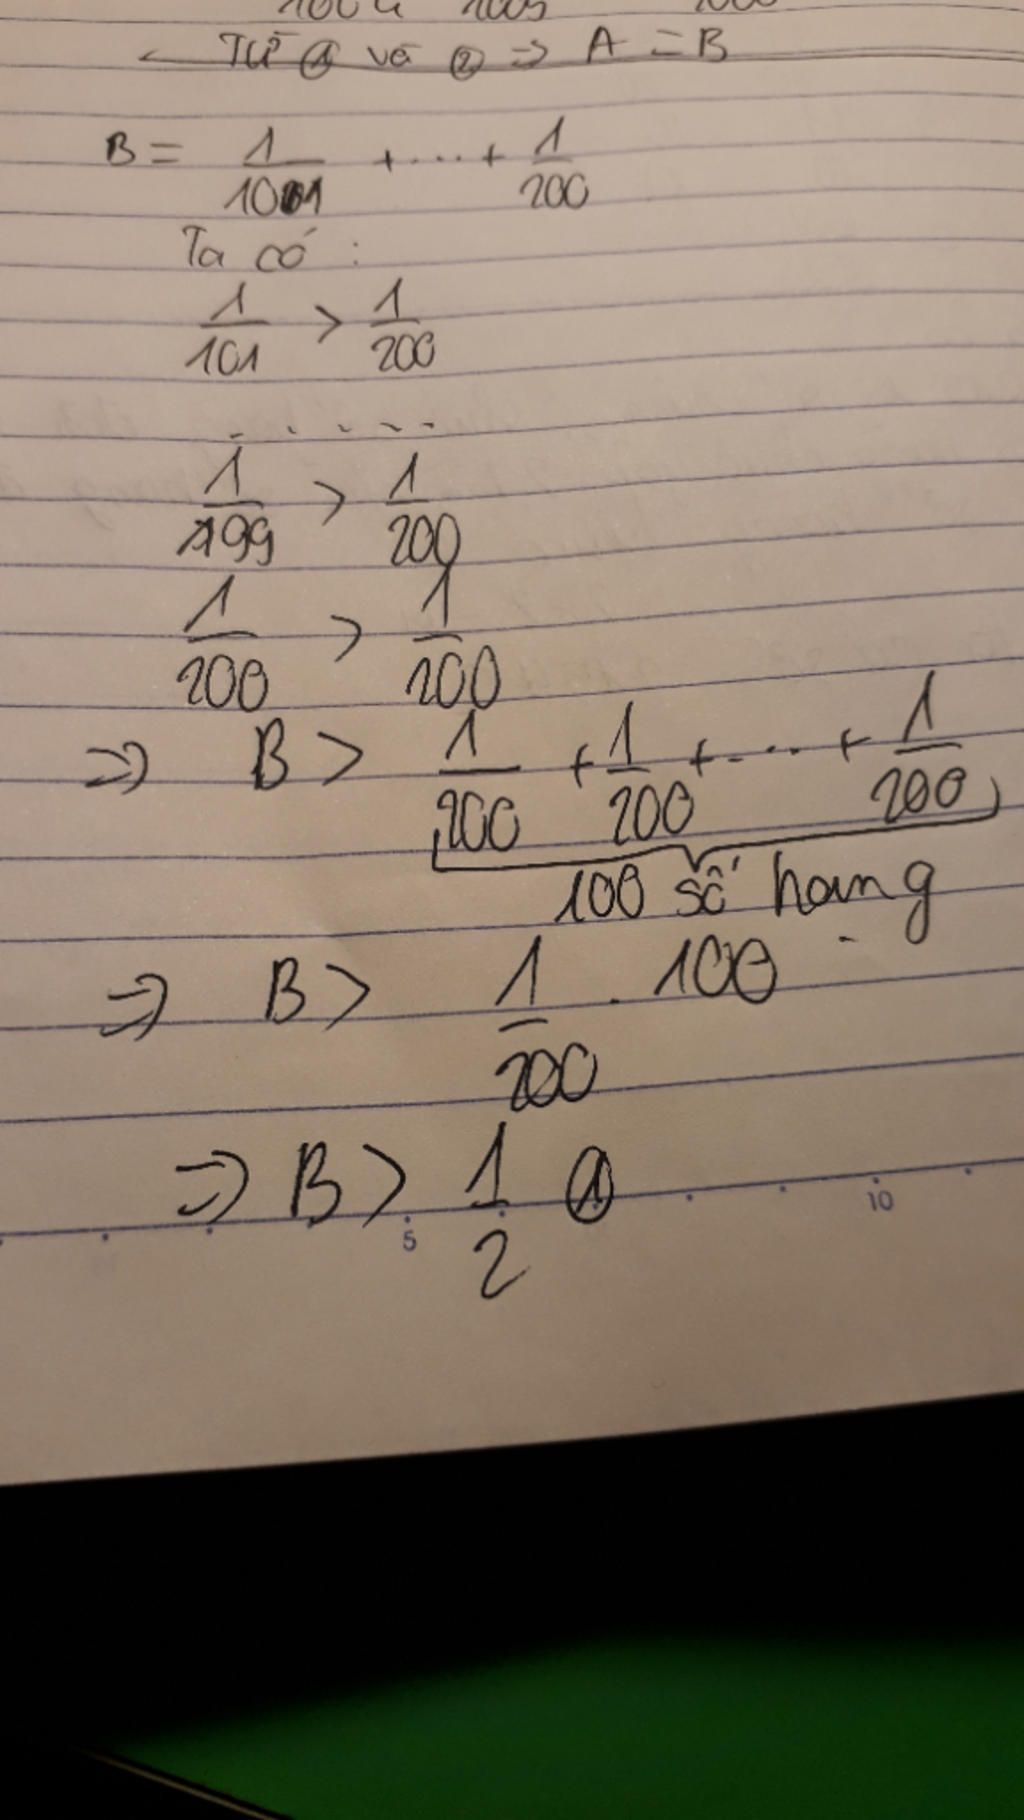 1004 1005
Từ ① và ② => A = B
B = 1/101 + .... + 1/200
Ta có :
1/101 > 1/200
. . . . .
1/199 > 1/200
1/200 > 1/200
=> B > 1/200 + 1/200 + .... + 1/200
100 số hạng
=> B > 1/200 . 100
=> B > 1/2 ①
5 10